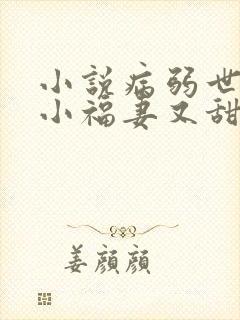 小說病弱世
小福妻又甜
姜顏顏